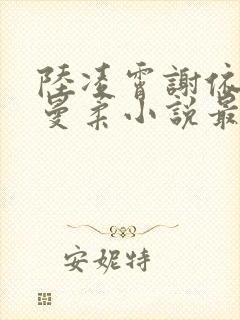 陸凌霄謝依
曼柔小說最
安妮特